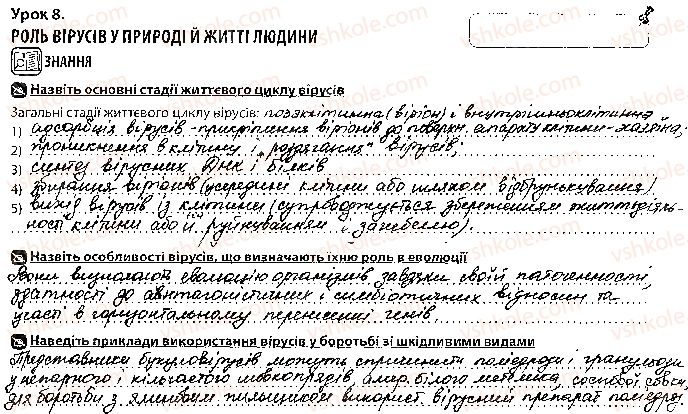 Урок 8.
РОЛЬ ВІРУСІВ У ПРИРОДІ Й ЖИТТІ ЛЮДИНИ
ЗНАННЯ
Назвіть основні стадії життєвого циклу вірусів
Загальні стадії життєвого циклу вірусів: позаклітинна (віріон) і внутрішньоклітинна
1) адсорбція вірусів - прикріплення віріонів до поверхн. апарату клітини-хазяїна;
2) проникнення в клітину і „роздягання" вірусів;
3) синтез вірусних ДНК і білків
4) збирання віріонів (усередині клітини або шляхом відбрунькування)
5) вихід вірусів із клітини (супроводжується збереженням життєдіяль-
ності клітини або її руйнуванням і загибеллю).
Назвіть особливості вірусів, що визначають їхню роль в еволюції
Вони визначають еволюцію організмів завдяки своїй патогенності,
здатності до антагоністичних і симбіотичних відносин та
участі в горизонтальному перенесенні генів.
Наведіть приклади використання вірусів у боротьбі зі шкідливими видами
Представники бакуловірусів можуть спричинити поліедрози і гранульози
у непарного і кільчастого шовкопрядів, амер. білого метелика, соснової совки,
для боротьби з ялиновим пильщиком використ. вірусний препарат
vshkole.com